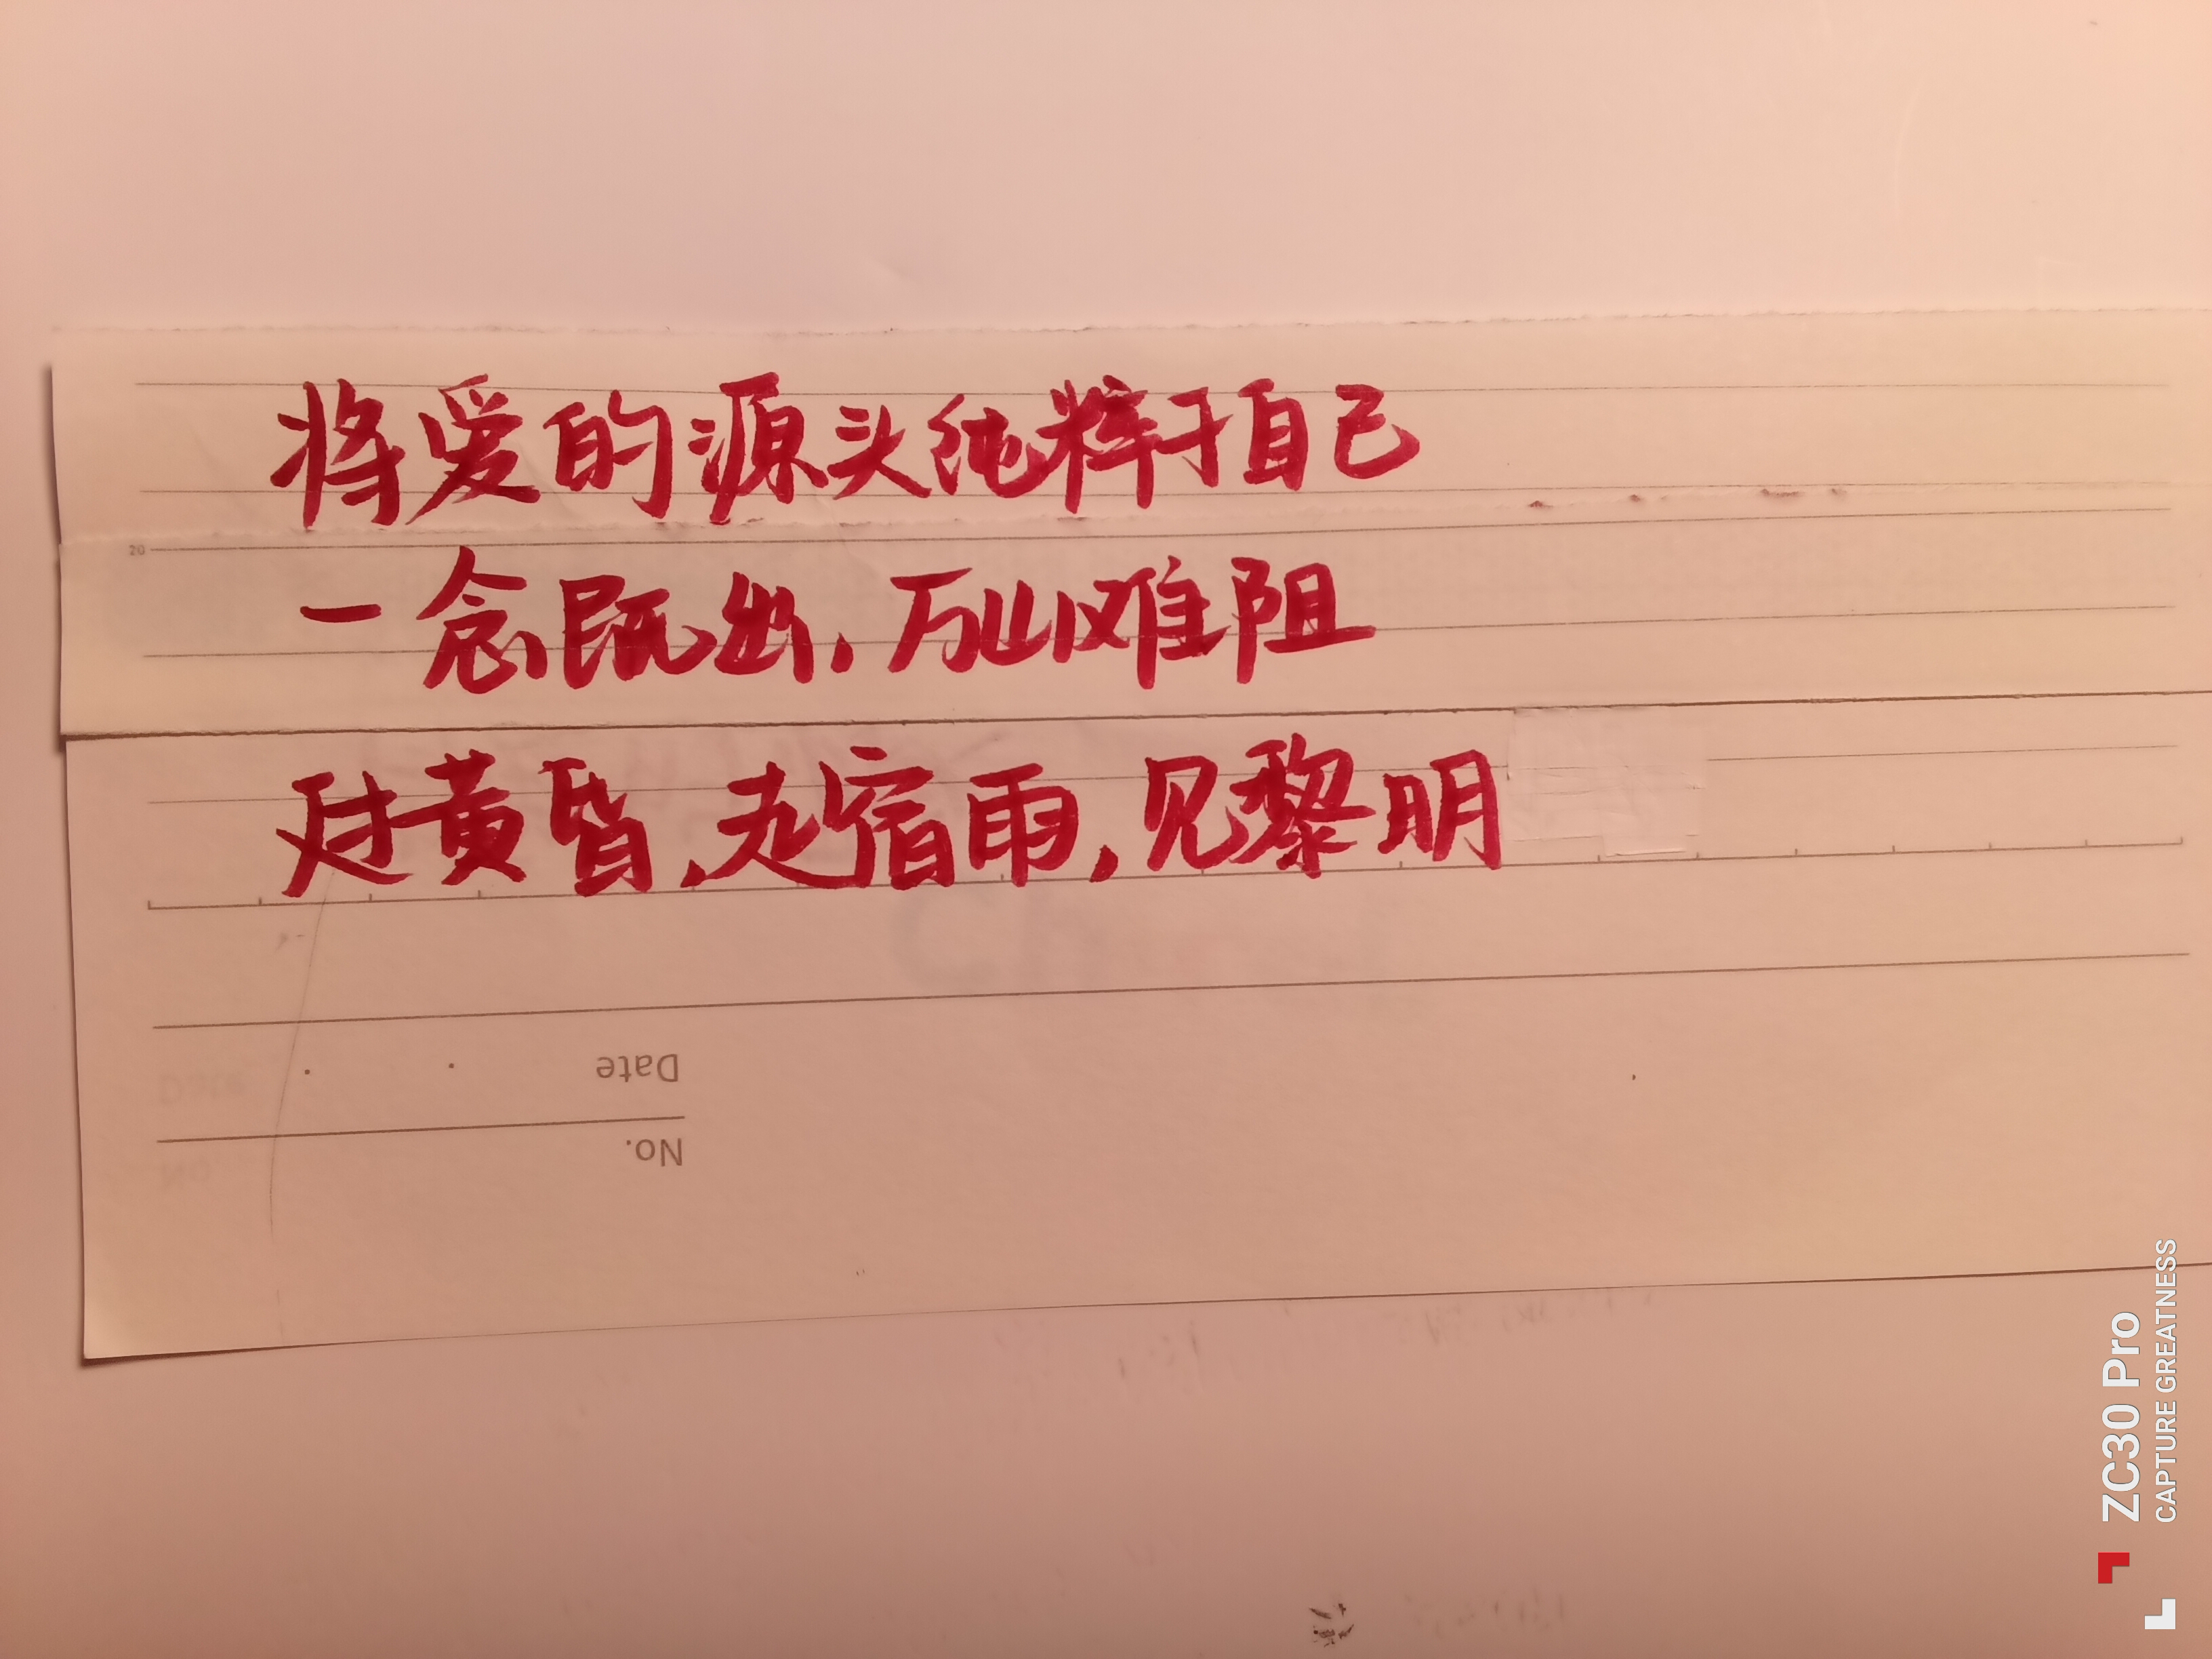 将爱的源头纯粹于自己
20
一念既出,万山难阻
过黄昏,走宿雨,见黎明
Date
No.
ZC30 Pro
CAPTURE GREATNESS